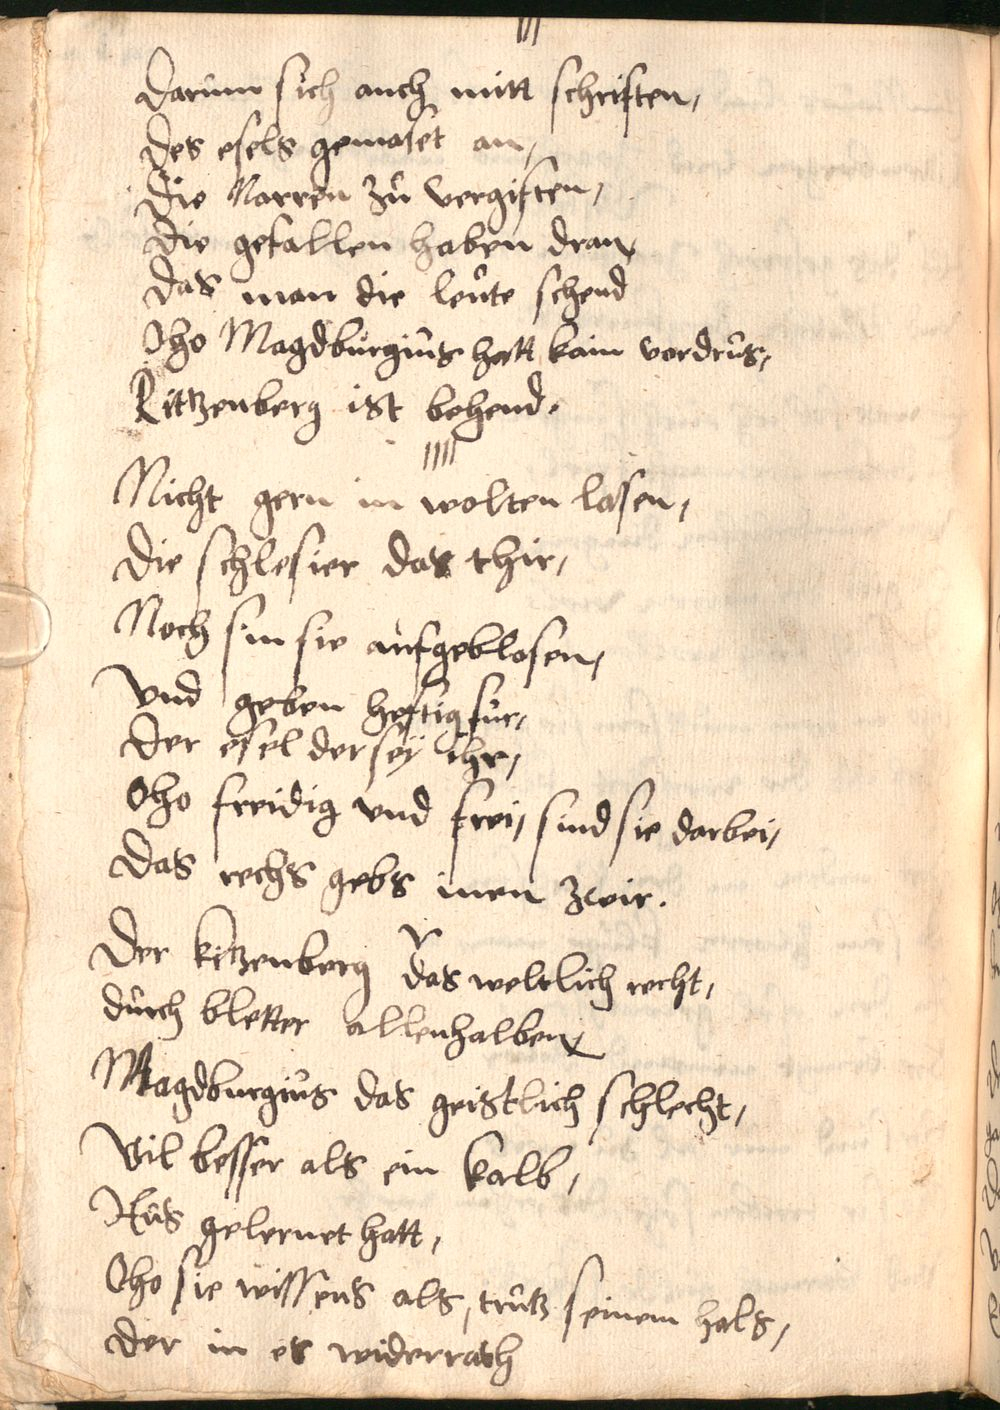 III
Darum sich auch mitt schriften,
des esels gemaset an,
die Narren zu vergiften,
die gefallen haben dran
das man die leute schend
Oho Magdburgius hatt kain verdrus,
Kittzenberg ist behend.
IIII
Nicht gern in wolten lasen,
die schlesier das thir,
Noch sin sie aufgeblasen,
Vnd geben heftig fur,
der esel der sey ihr,
Oho freidig vnd frei, sind sie darbei,
das rechs gebs inen zwir.
V
Der kitzenberg das weltlich recht,
durch bletter allenhalben
Magdburgius das geistlich schlecht,
Vil besser als ein kalb,
Aus gelernet hatt,
Oho sie wissens als, trutz seinem hals,
der in es widerrath